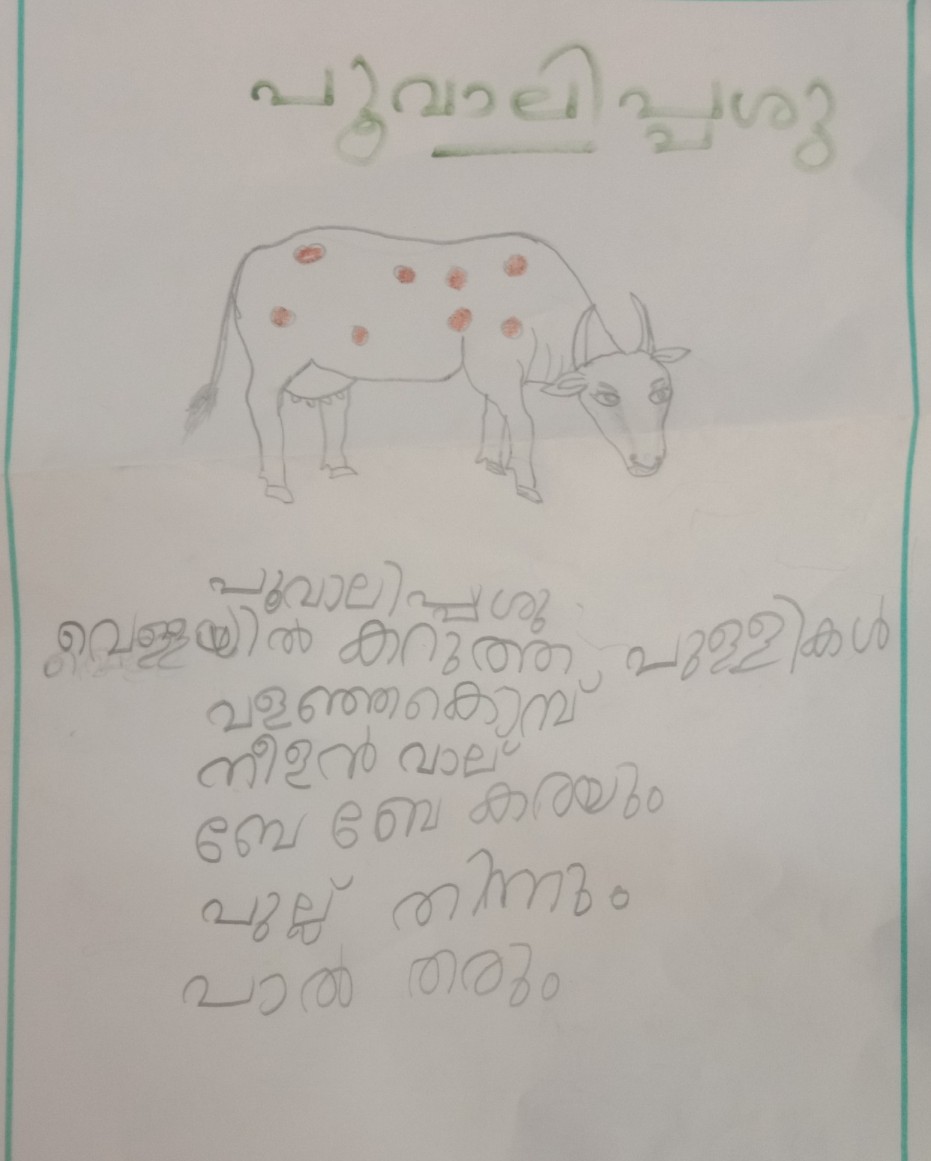 പൂവാലിപ്പശു
പൂവാലിപ്പശു
വെള്ളയിൽ കറുത്ത പുള്ളികൾ
വളഞ്ഞകൊമ്പ്
നീളൻ വാല്
ബേ ബേ കരയും
പുല്ല് തിന്നും
പാൽ തരും